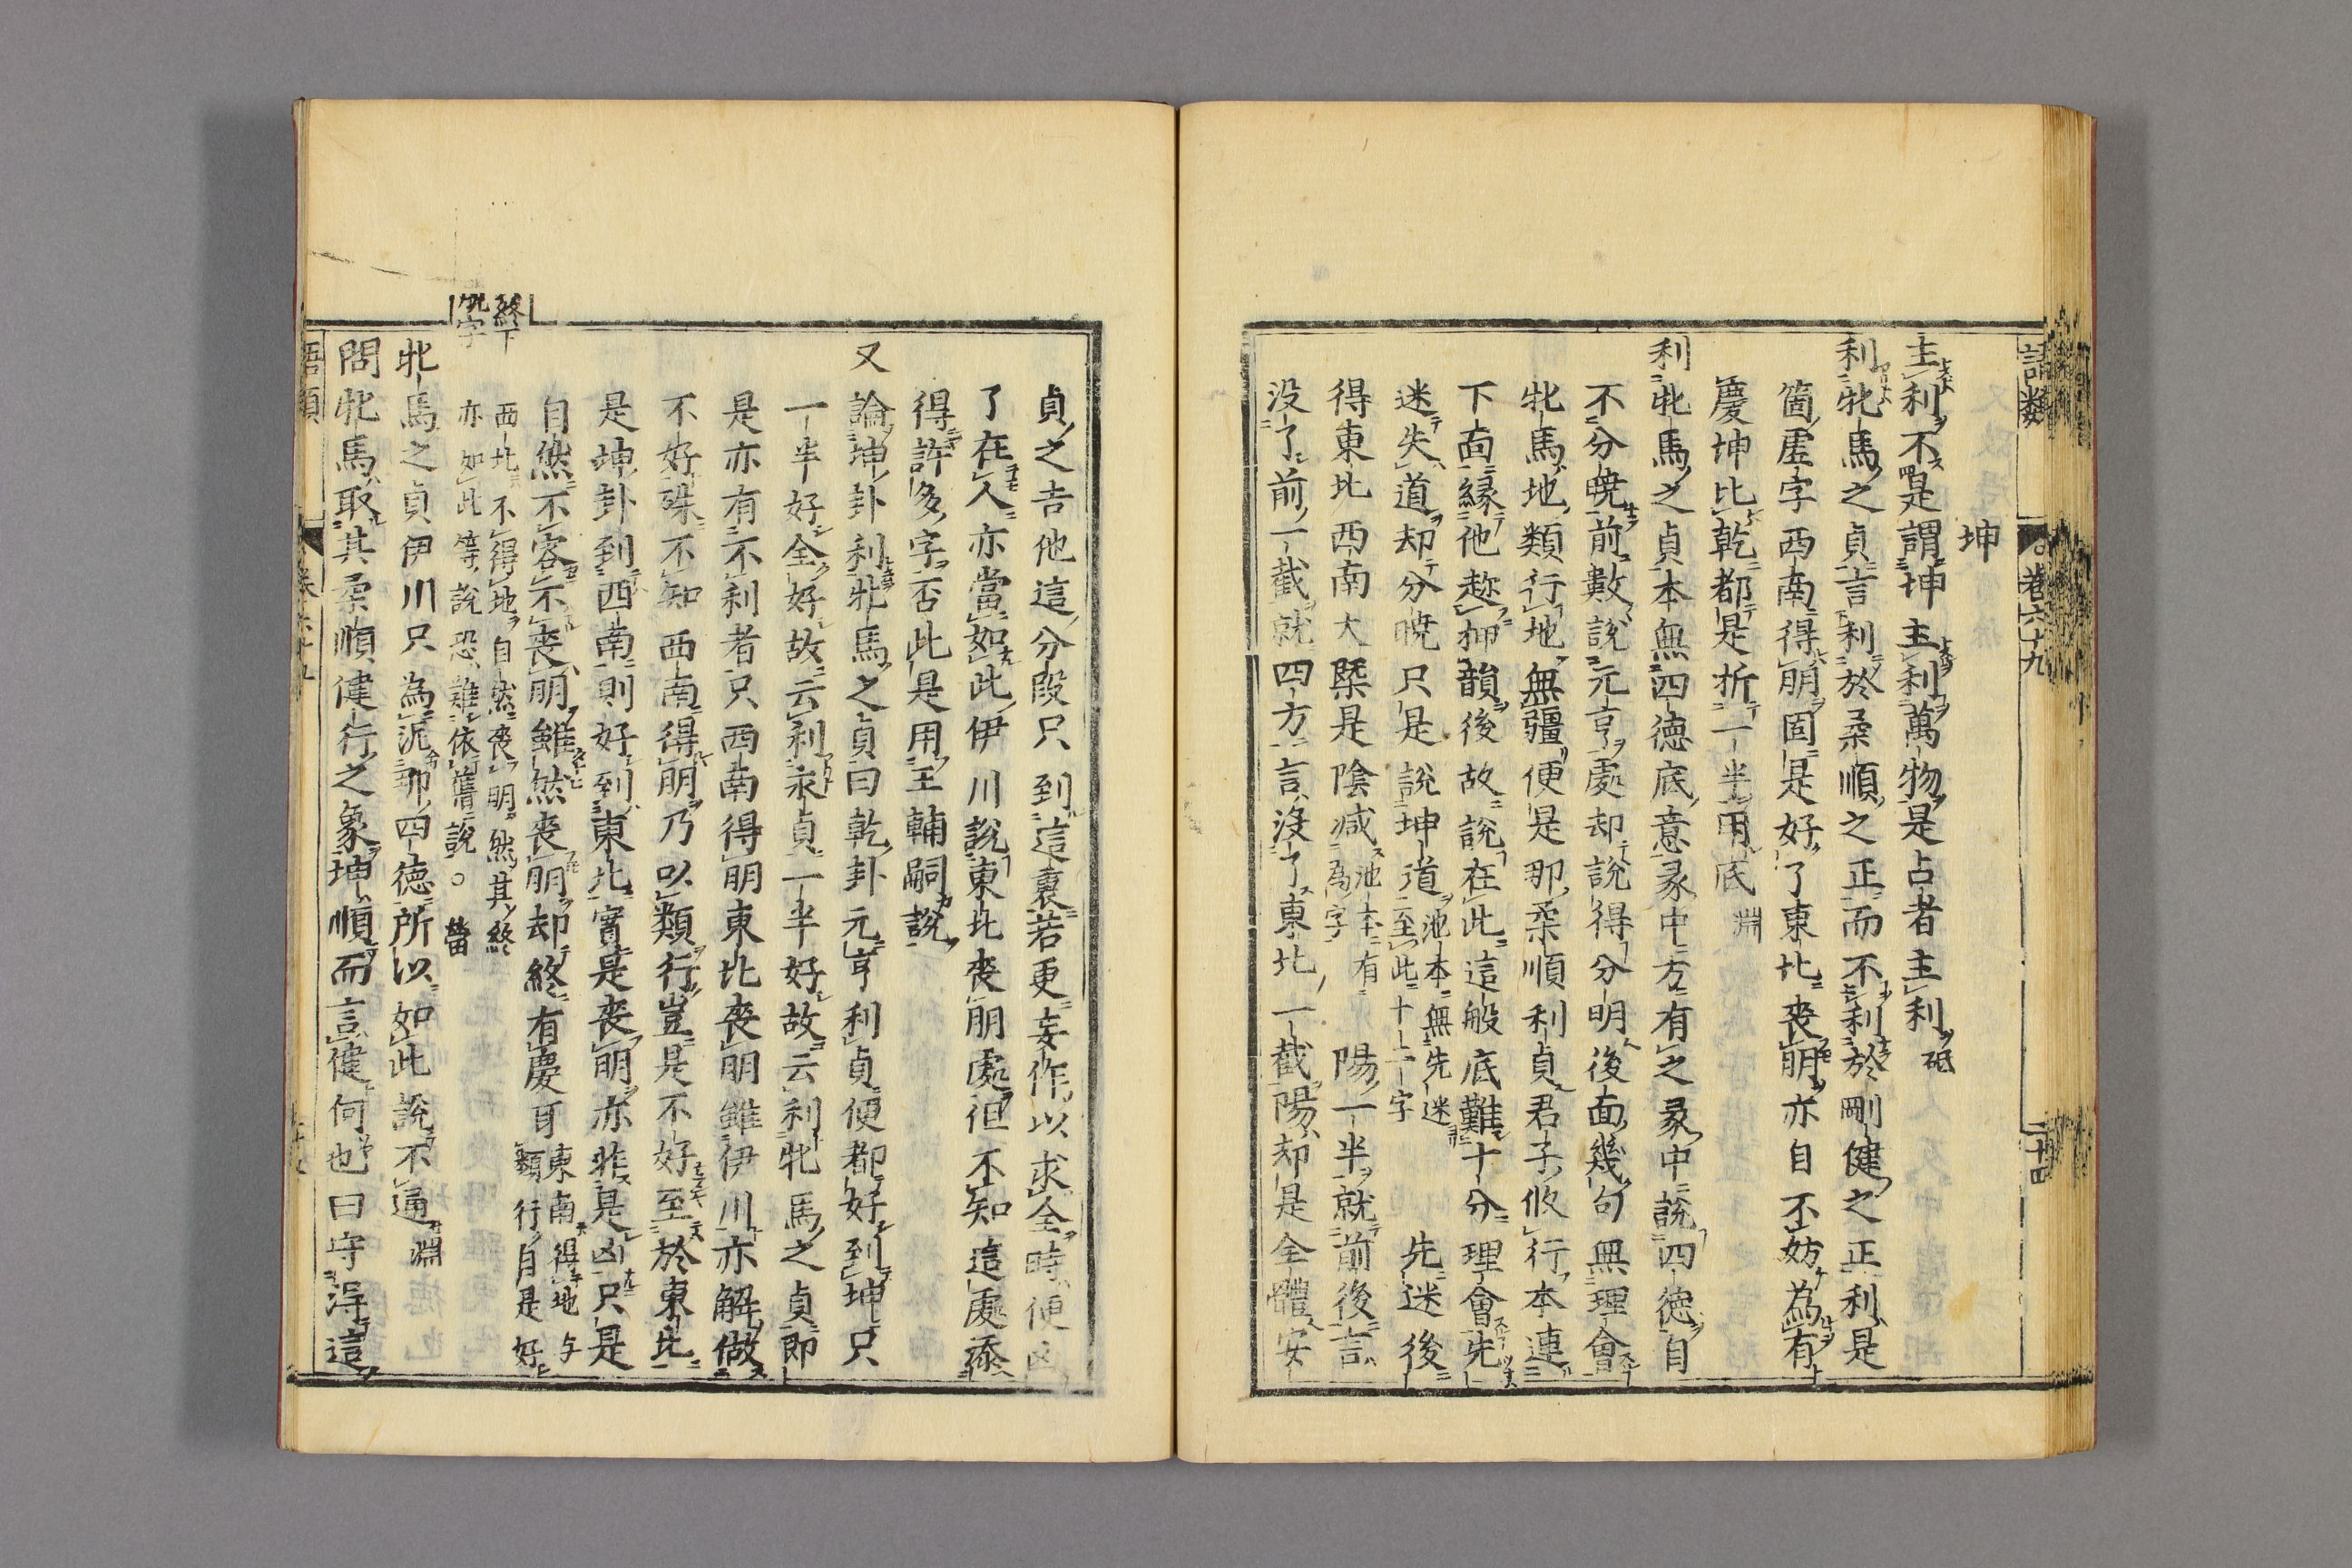 語類 卷六十九 二十四
坤
主利不是謂坤主利萬物是占者主利 砥
利牝馬之貞言利於柔順之正而不利於剛健之正利是
箇虛字西南得朋固是好了東北喪朋亦自不妨為有
慶坤比乾都是折一半用底 淵
利牝馬之貞本無四德底意彖中方有之彖中說四德自
不分曉前數說元亨處却說得分明後面幾句無理會
牝馬地類行地無疆便是那柔順利貞君子攸行本連
下面緣他趂押韻後故說在此這般底難十分理會先
迷失道却分曉只是說坤道 池本無先迷至此十一字 先迷後
得東北西南大槩是陰減 池本有為字 陽一半就前後言
沒了前一截就四方言沒了東北一截陽却是全體安
貞之吉他這分段只到這裏若更妄作以求全時便凶
了在人亦當如此伊川說東北喪朋處但不知這處添
得許多字否此是用王輔嗣說
又論坤卦利牝馬之貞曰乾卦元亨利貞便都好到坤只
一半好全好故云利永貞一半好故云利牝馬之貞即
是亦有不利者只西南得朋東北喪朋雖伊川亦解做
不好殊不知西南得朋乃以類行豈是不好至於東北
是坤卦到西南則好到東北實是喪朋亦非是凶只是
自然不容不喪朋雖然喪朋却終有慶耳 東南得地与類行自是好
西北不得地自然喪朋然其終亦如此等說恐難依舊說○𤲿
終下
牝馬之貞伊川只為泥那四德所以如此說不通 淵
問牝馬取其柔順健行之象坤順而言健何也曰守得這
語類 卷六十九